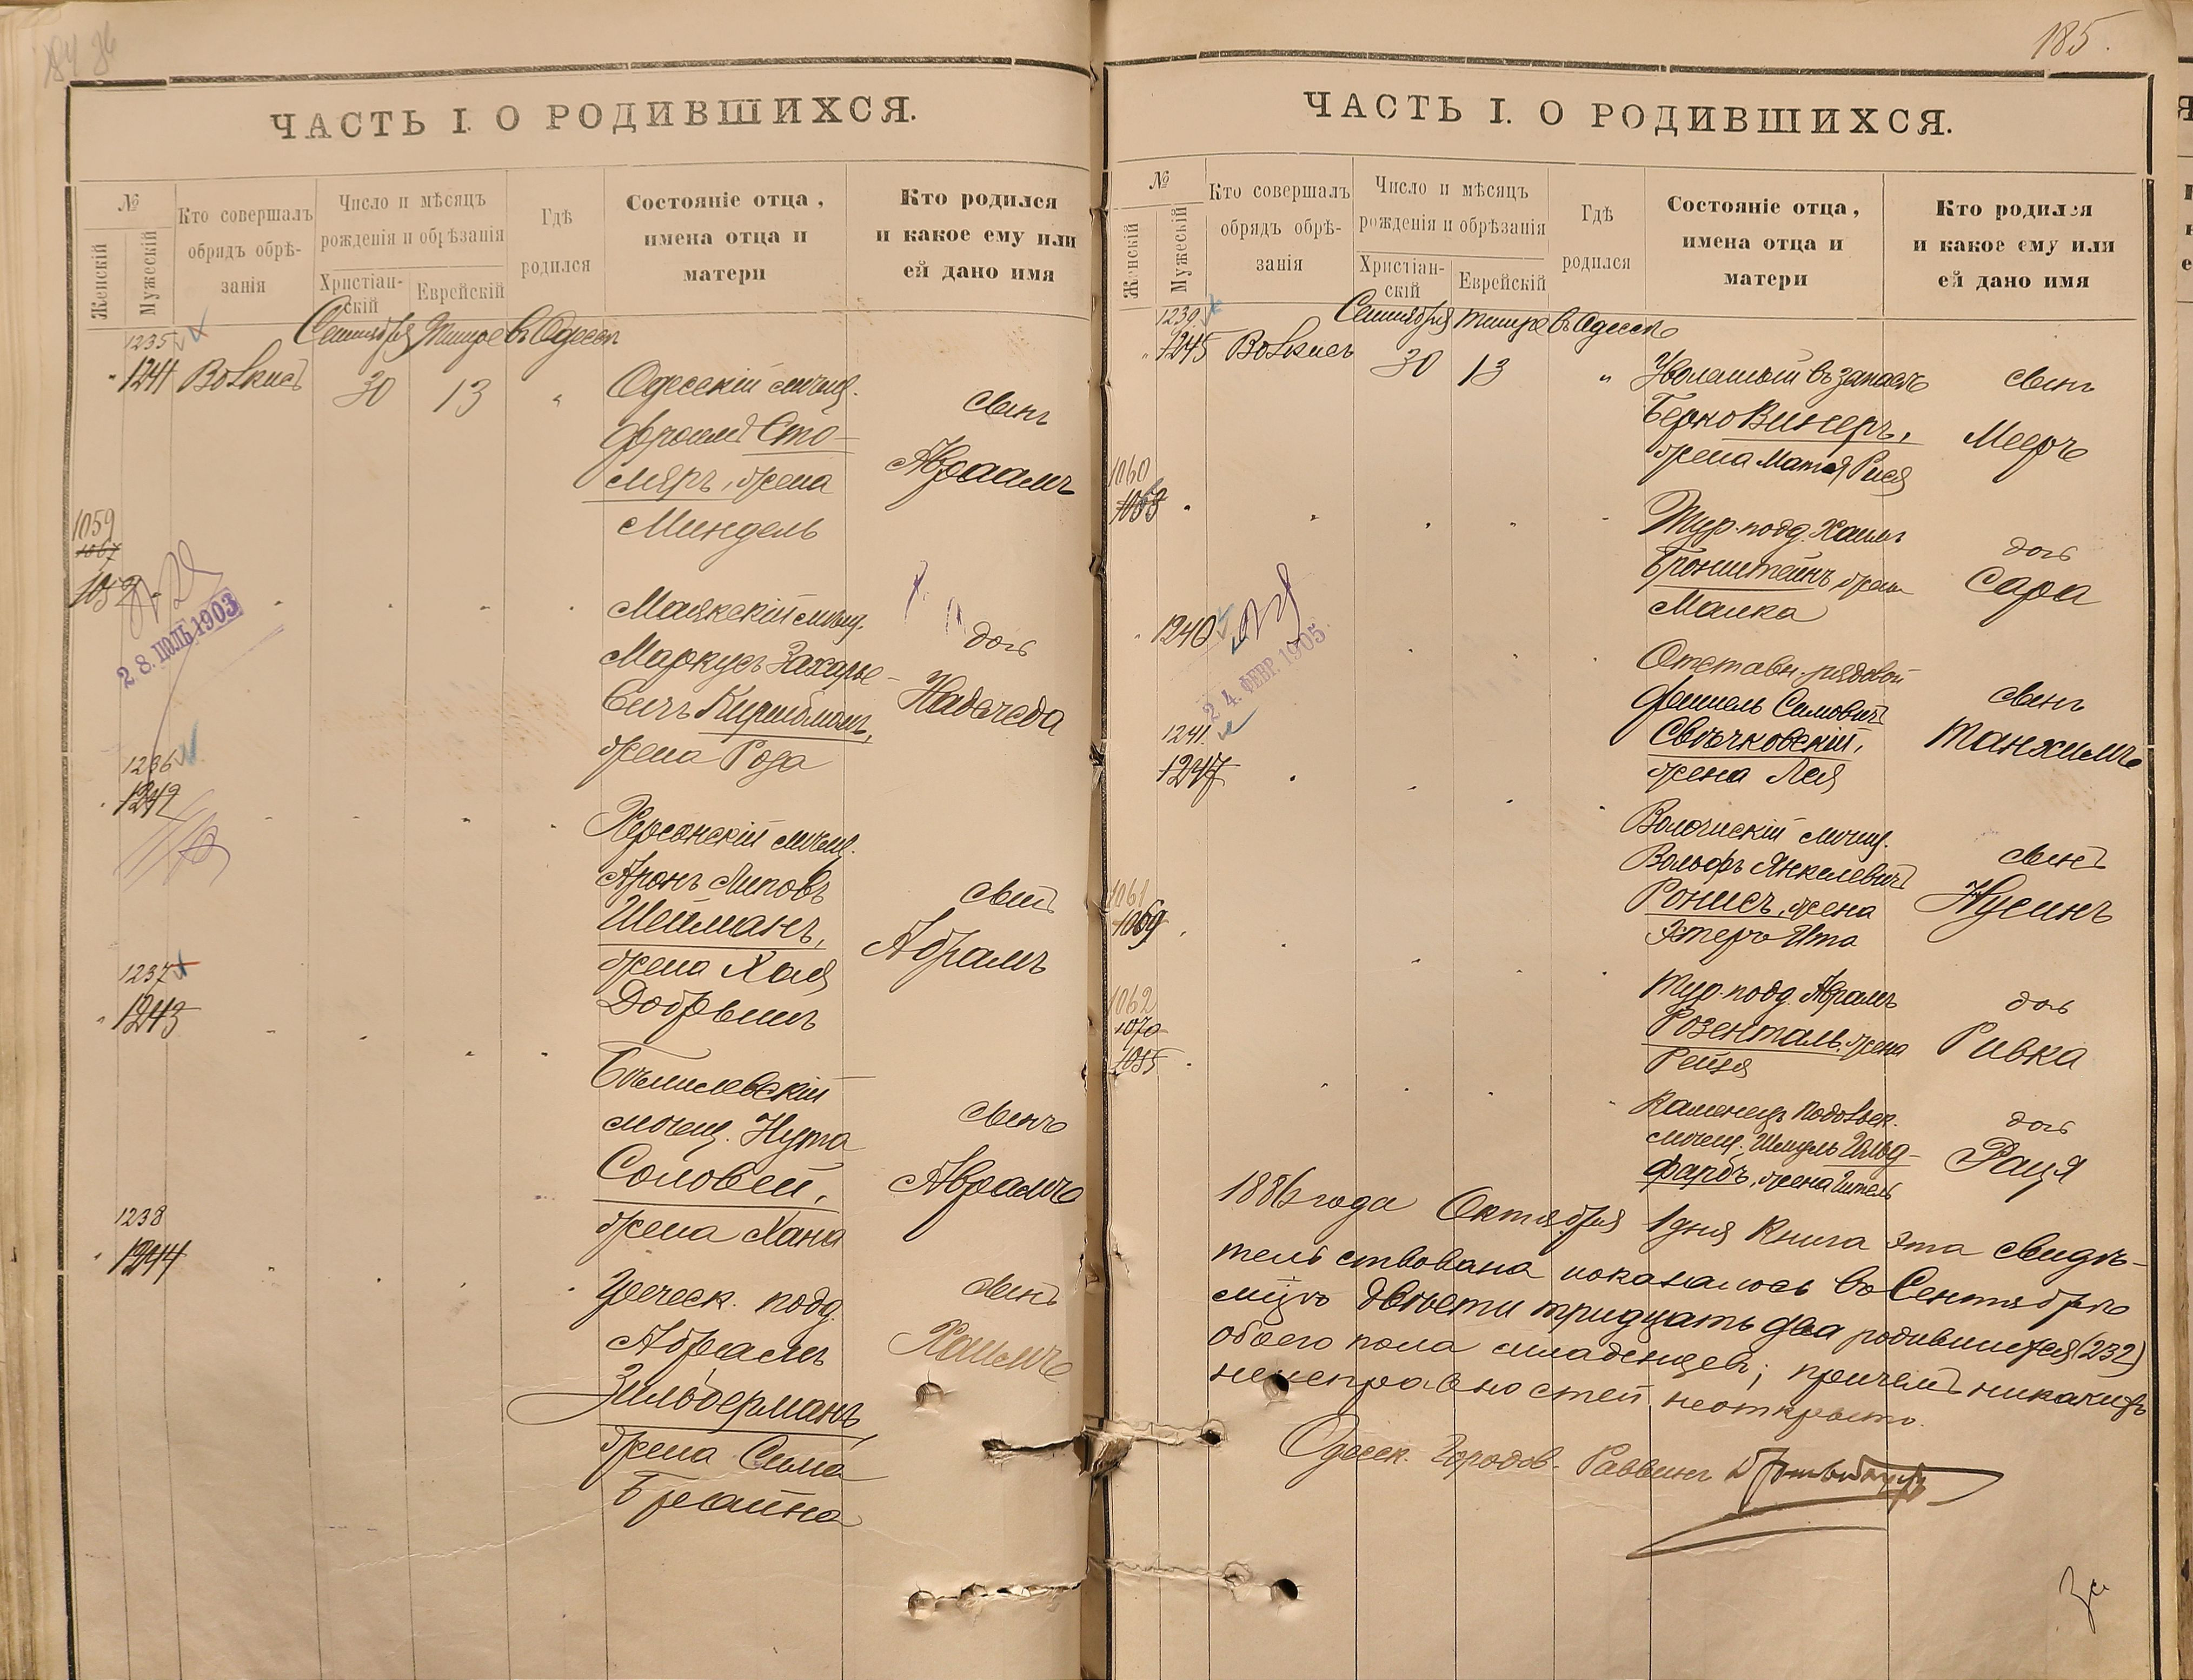 185.
ЧАСТЬ I. О РОДИВШИХСЯ.
№
Женскій
Мужескій
Кто совершалъ
обрядъ обрѣ-
занія
Число и мѣсяцъ
рожденія и обрѣзанія
Христіан-
скій
Еврейскій
Гдѣ
родился
Состояніе отца,
имена отца и
матери
Кто родился
и какое ему или
ей дано имя
1235
Сентября Тишре въ Одессѣ
1241 Волкисъ 30 13 " Одесскій мѣщ.
Фроимъ Сто-
ляръ, жена
Миндель
сынъ
Авраамъ
1059
1067
2 8. ІЮЛЬ 1903
Маякскій мѣщ.
Маркусъ Захарье-
вичъ Киршблатъ,
жена Роза
дочь
Надежда
1236
1242
Херсонскій мѣщ.
Аронъ Липовъ
Шейманъ,
жена Хая
Добрышъ
сынъ
Абрамъ
1237
1243
мѣщ. Нута
Соловей,
жена Хана
сынъ
Аврамъ
1238
1244
Греческ. подд.
Абрамъ
Зильберманъ,
жена Сима
Брайна
сынъ
Хаимъ
ЧАСТЬ I. О РОДИВШИХСЯ.
№
Женскій
Мужескій
Кто совершалъ
обрядъ обрѣ-
занія
Число и мѣсяцъ
рожденія и обрѣзанія
Христіан-
скій
Еврейскій
Гдѣ
родился
Состояніе отца,
имена отца и
матери
Кто родился
и какое ему или
ей дано имя
1239
Сентября Тишре въ Одессѣ
1245 Волкисъ 30 13 " Уволенный въ запасъ
Берко Винеръ,
жена Матля Рися
сынъ
Мееръ
1060
1068
Тур. подд. Хаимъ
Бронштейнъ жена
Малка
дочь
Сара
1240
2 4. ФЕВР. 1905.
Отставн. рядовой
Фишель Симовичъ
Свѣчковскій,
жена Лея
сынъ
Танхимъ
1241
1247
Волочискій мѣщ.
Вольфъ Янкелевичъ
Ронисъ, жена
Эстеръ Ита
сынъ
Нусинъ
1061
1069
Тур. подд. Абрамъ
Розенталь, жена
Рейзя
дочь
Ривка
1062
1070
Каменецъ Подольск.
мѣщ. Шмуль Гольд-
фарбъ, жена Гитель
дочь
Раця
1886 года Октября 1 дня Книга эта свидѣ-
тельствована показалось въ Сентябрѣ
мѣцѣ двѣсти тридцать два родившихся (232)
обоего пола младенцевъ; причемъ никакихъ
неисправностей неоткрыто.
Одесск. Городов. Раввинъ